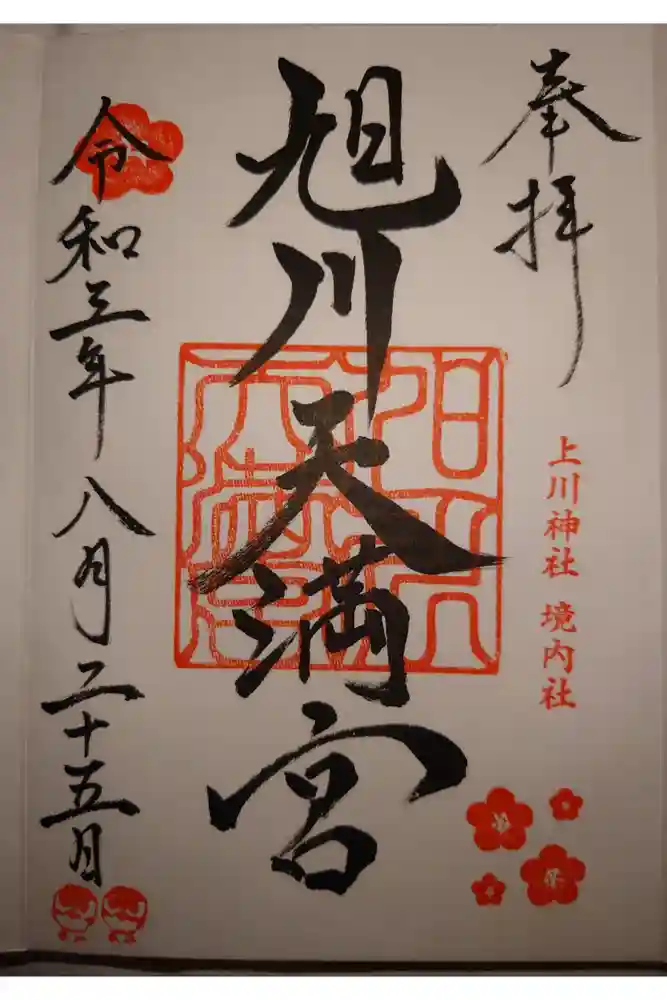 奉拝
上川神社 境内社
旭川天満宮
令和三年八月二十五日